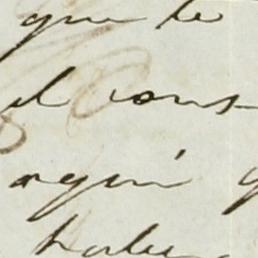 que le
el cons
aqui q
haber